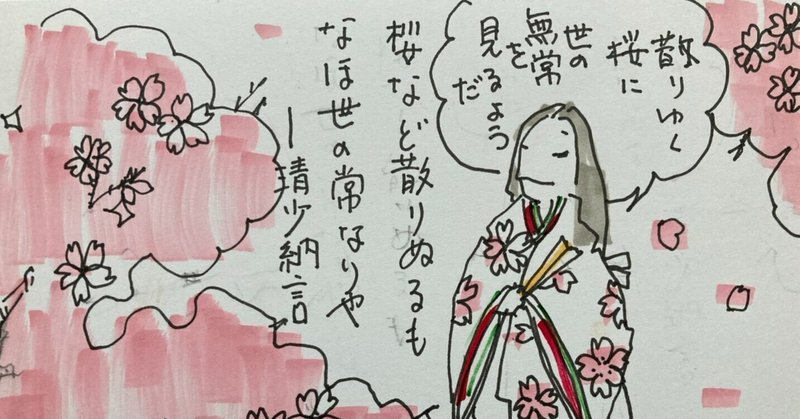 散りゆく
桜に
世の
無常を
見るよう
だ
桜など散りぬるも
なほ世の常なりや
ー清少納言